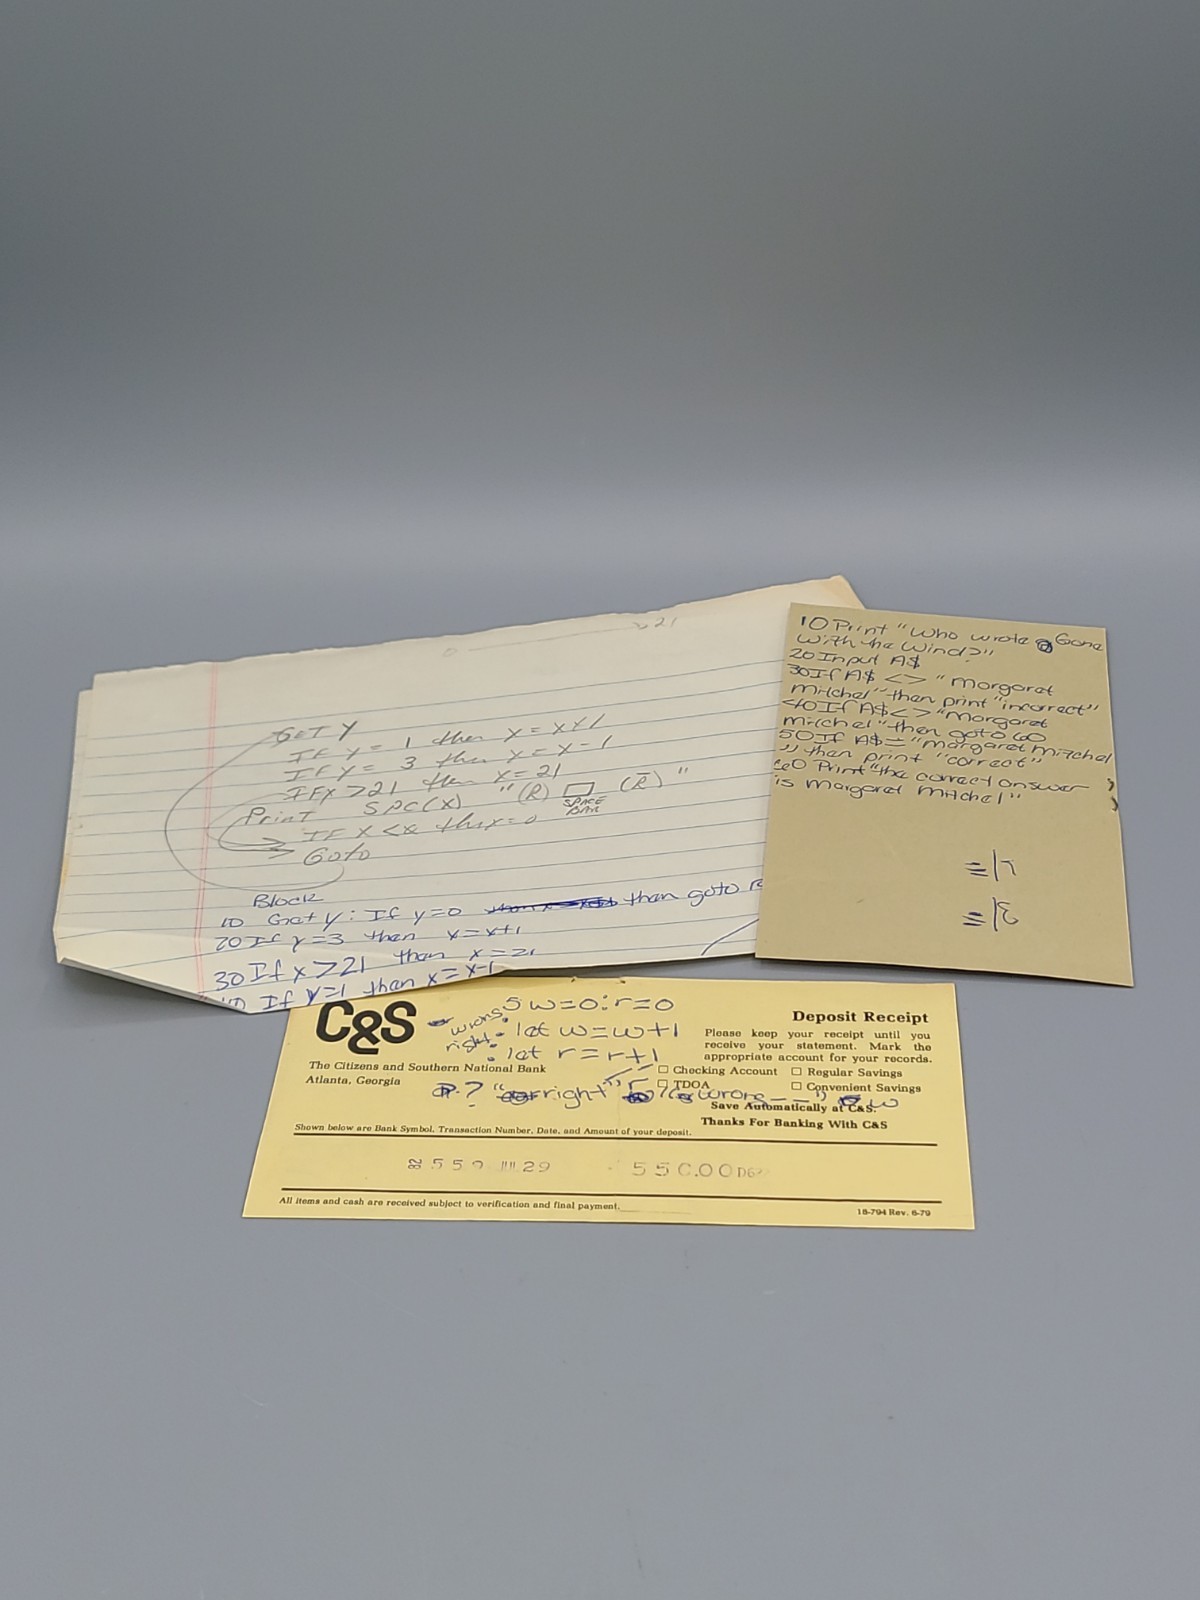 21
GET Y
If Y = 1 then X = X+1
If Y = 3 then X = X-1
If X > 21 then X = 21
Print SPC(X) "(R) SPACE BAR (R)"
If X <
Goto
Block
10 Get y: If y=0 then goto
20 If y=3 then x=x+1
30 If x > 21 then x=21
If y=1 then x=x-1
10 Print "Who wrote Gone
With the Wind?"
20 Input A$
30 If A$ <> "Margaret
Mitchel" then print "incorrect"
40 If A$ <> "Margaret
Mitchel" then goto 60
50 If A$ = "Margaret Mitchel
" then print "correct"
60 Print "the correct answer
is Margaret Mitchel"
C&S
The Citizens and Southern National Bank
Atlanta, Georgia
5 w=0:r=0
wrong: let w=w+1
right: let r=r+1
? "right" wrong w
Deposit Receipt
Please keep your receipt until you
receive your statement. Mark the
appropriate account for your records.
Checking Account Regular Savings
TDOA Convenient Savings
Save Automatically at C&S.
Thanks For Banking With C&S
Shown below are Bank Symbol, Transaction Number, Date, and Amount of your deposit.
29 550.00
All items and cash are received subject to verification and final payment.
18-794 Rev. 6-79